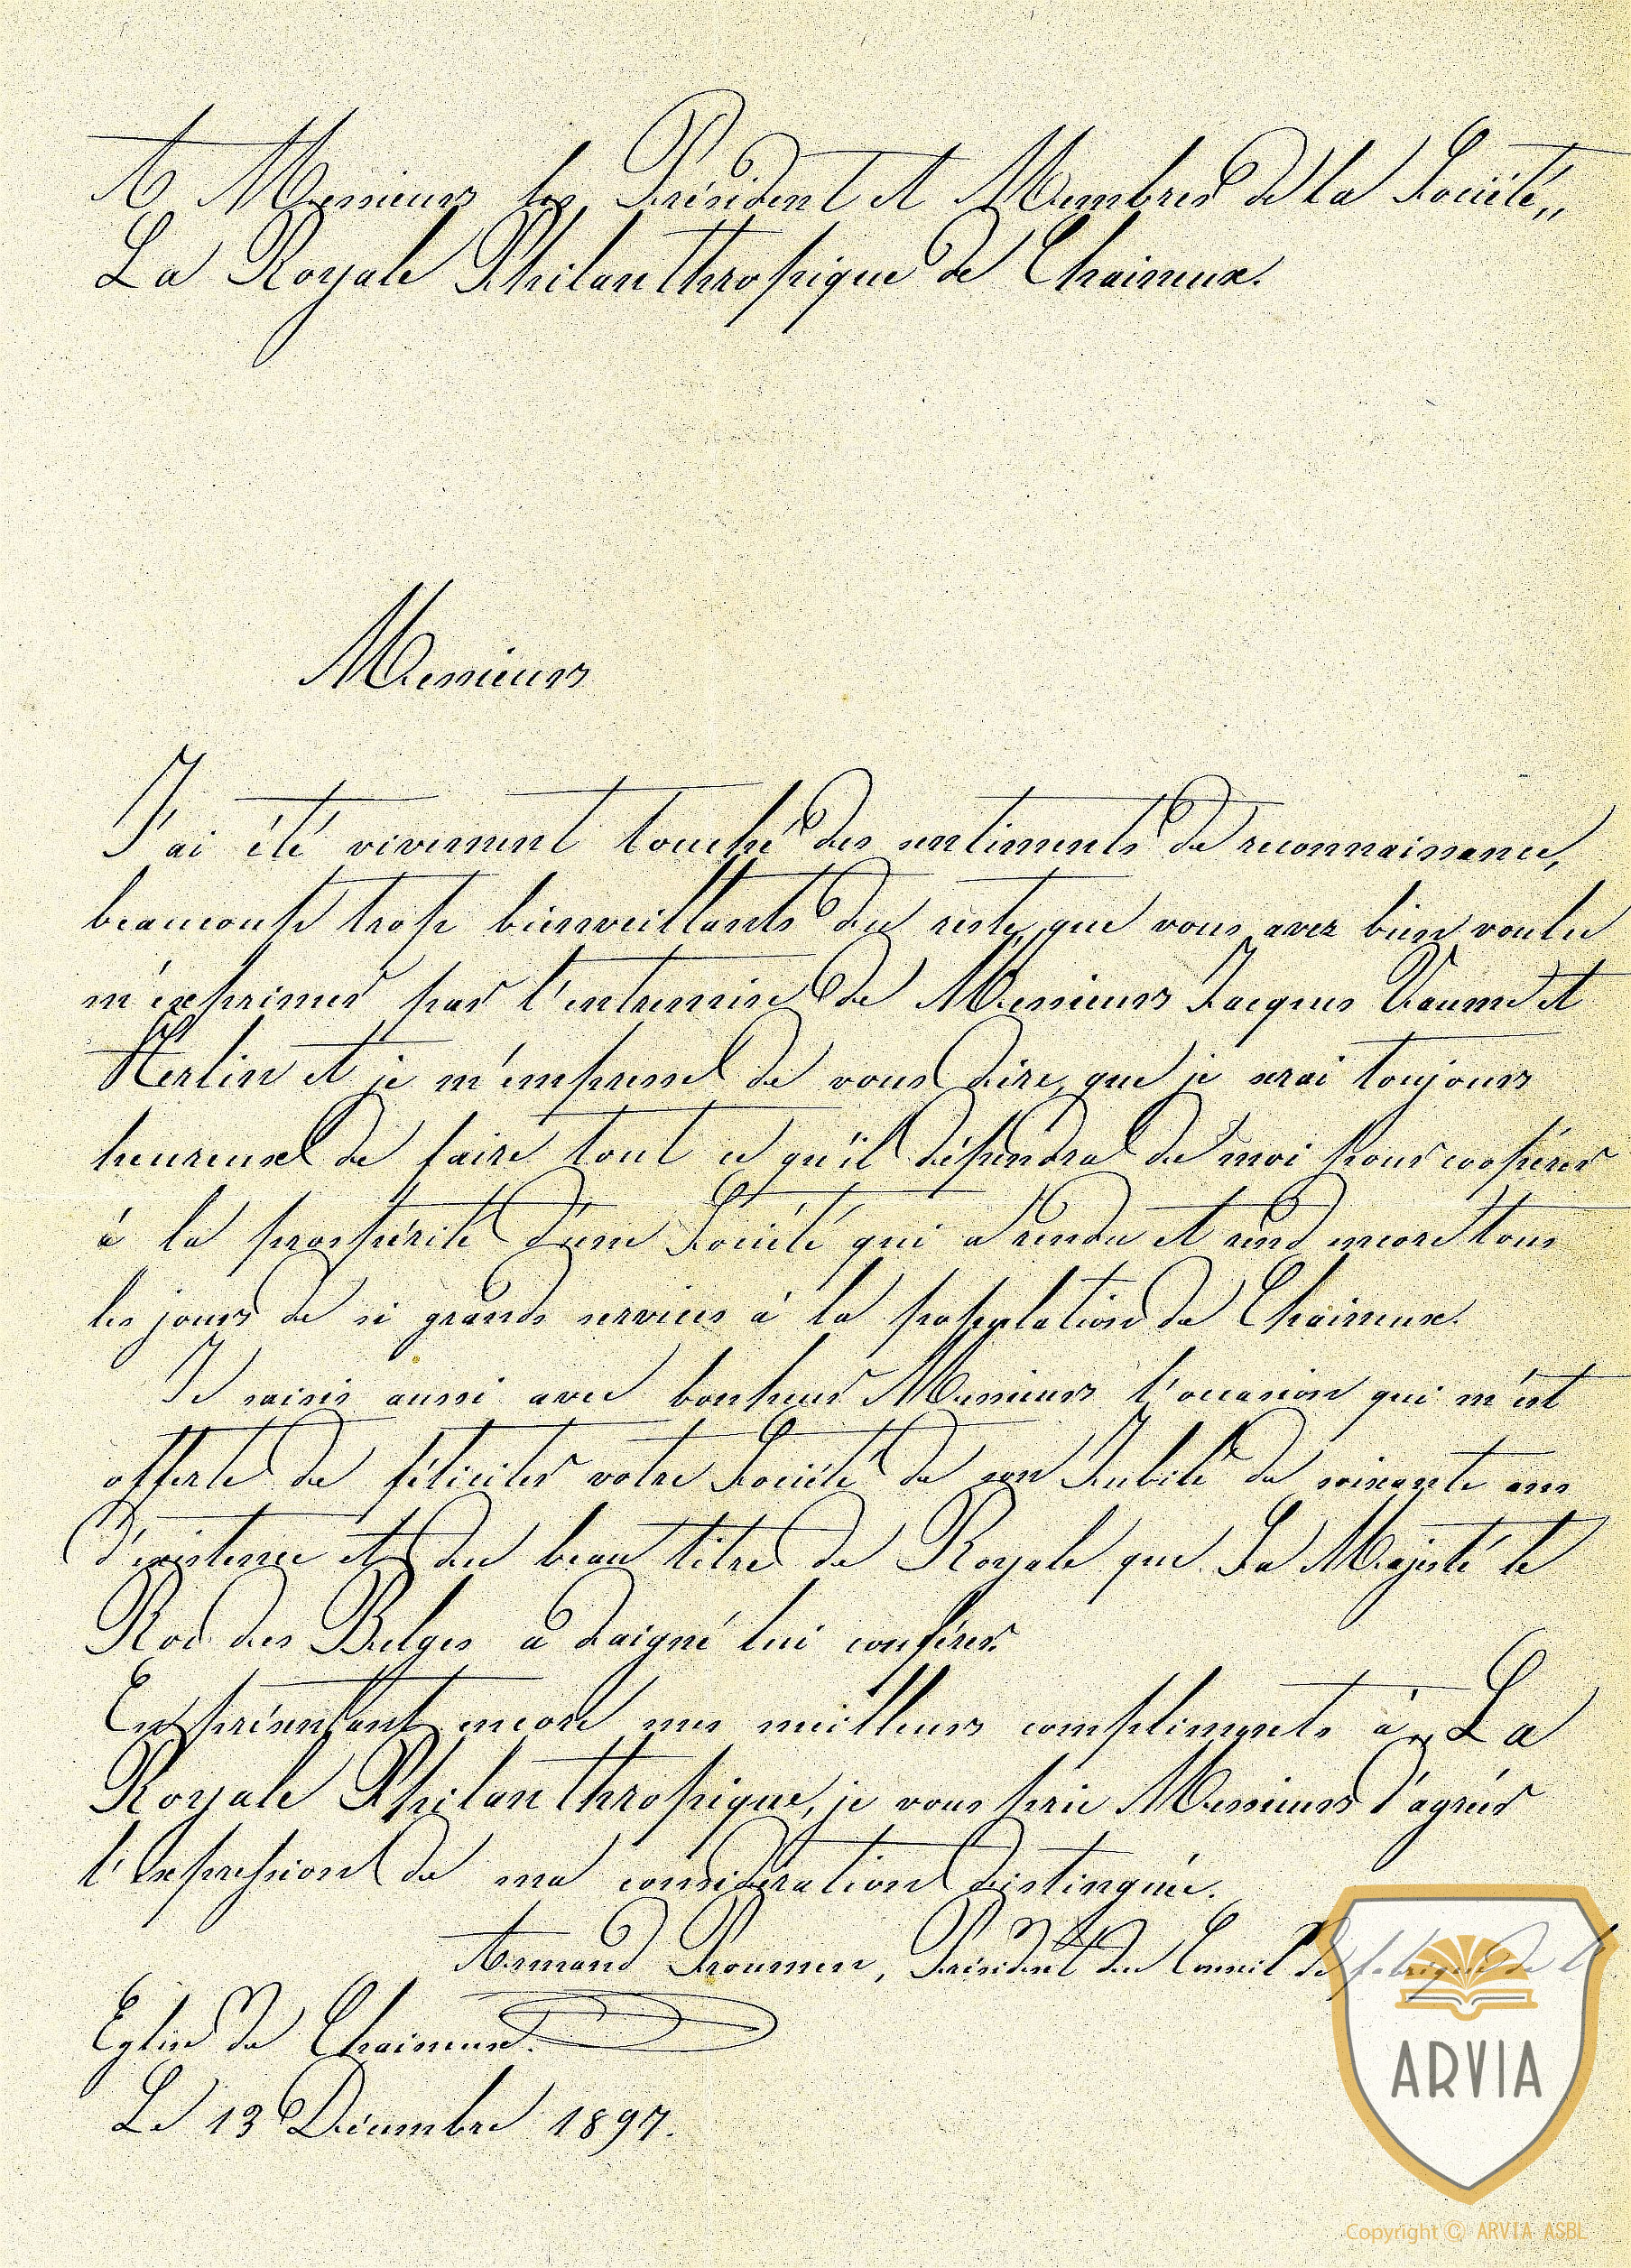 A Messieurs les Président et Membres de la Société „
La Royale Philanthropique de Chaineux.
Messieurs
J'ai été vivement touché des sentiments de reconnaissance,
beaucoup trop bienveillants du reste, que vous avez bien voulu
m'exprimer par l'entremise de Messieurs Jacques et
Herlin et je m'empresse de vous dire, que je serai toujours
heureux de faire tout ce qu'il dépendra de moi pour coopérer
à la prospérité d'une Société qui a rendu et rend encore tous
les jours de si grands services à la population de Chaineux.
Je saisis aussi avec bonheur Messieurs l'occasion qui m'est
offerte de féliciter votre Société de son Jubilé de soixante ans
d'existence et du beau titre de Royale que Sa Majesté le
Roi des Belges a daigné lui conférer.
En présentant encore mes meilleurs compliments à „ La
Royale Philanthropique, je vous prie Messieurs d'agréer
l'Expression de ma considération distinguée.
Armand , Président du Conseil de fabrique de l'
Eglise de Chaineux.
Le 13 Décembre 1897.
ARVIA
Copyright © ARVIA ASBL